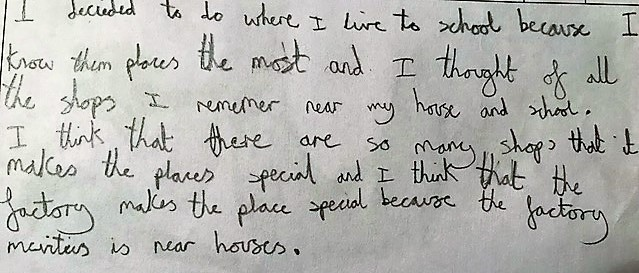 I decieded to do where I live to school because I
know them places the most and I thought of all
the shops I rememer near my house and school.
I think that there are so many shops that it
makes the places special and I think that the
factory makes the place special because the factory
is near houses.